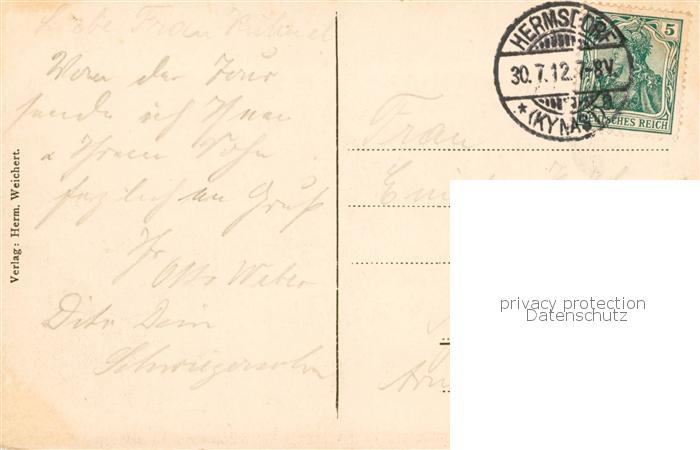 Liebe Frau Kühnel
Von der Tour
sende ich Ihnen
u Ihrem Sohn
herzlichen Gruß
Ihr
Otto Weber
Dito Dein
Schwiegersohn
Verlag: Herm. Weichert.
HERMSDORF
30.7.12.7-8V.
* (KYNAST)
5
DEUTSCHES REICH
Frau
privacy protection
Datenschutz